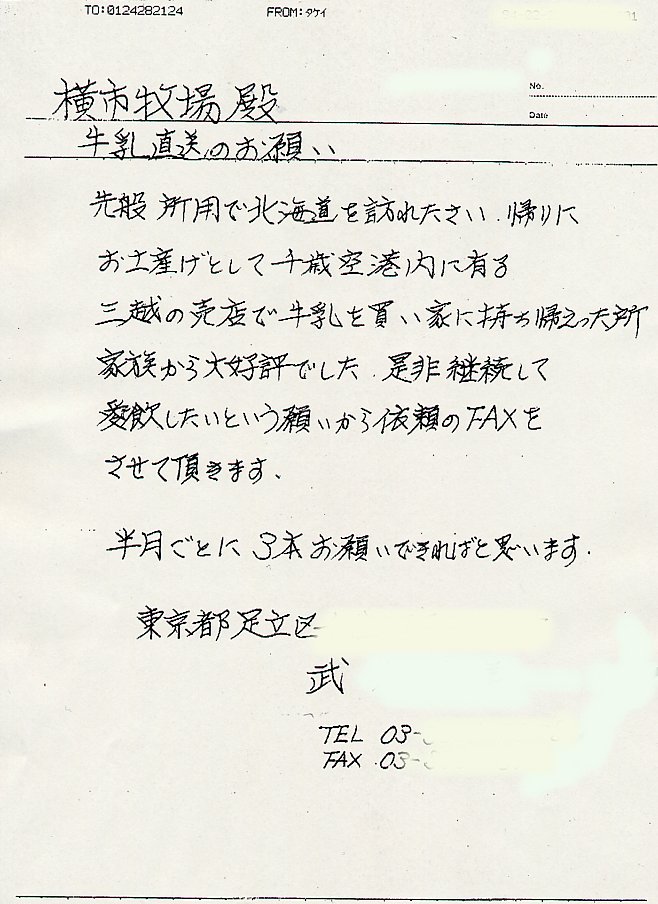 TO:0124282124 FROM:タケイ
No.
Date
横市牧場殿
牛乳直送のお願い
先般所用で北海道を訪れたさい、帰りに
お土産げとして千歳空港内に有る
三越の売店で牛乳を買い家に持ち帰えった所
家族から大好評でした。是非継続して
愛飲したいという願いから依頼のFAXを
させて頂きます。
半月ごとに3本お願いできればと思います。
東京都足立区
武
TEL 03-
FAX 03-